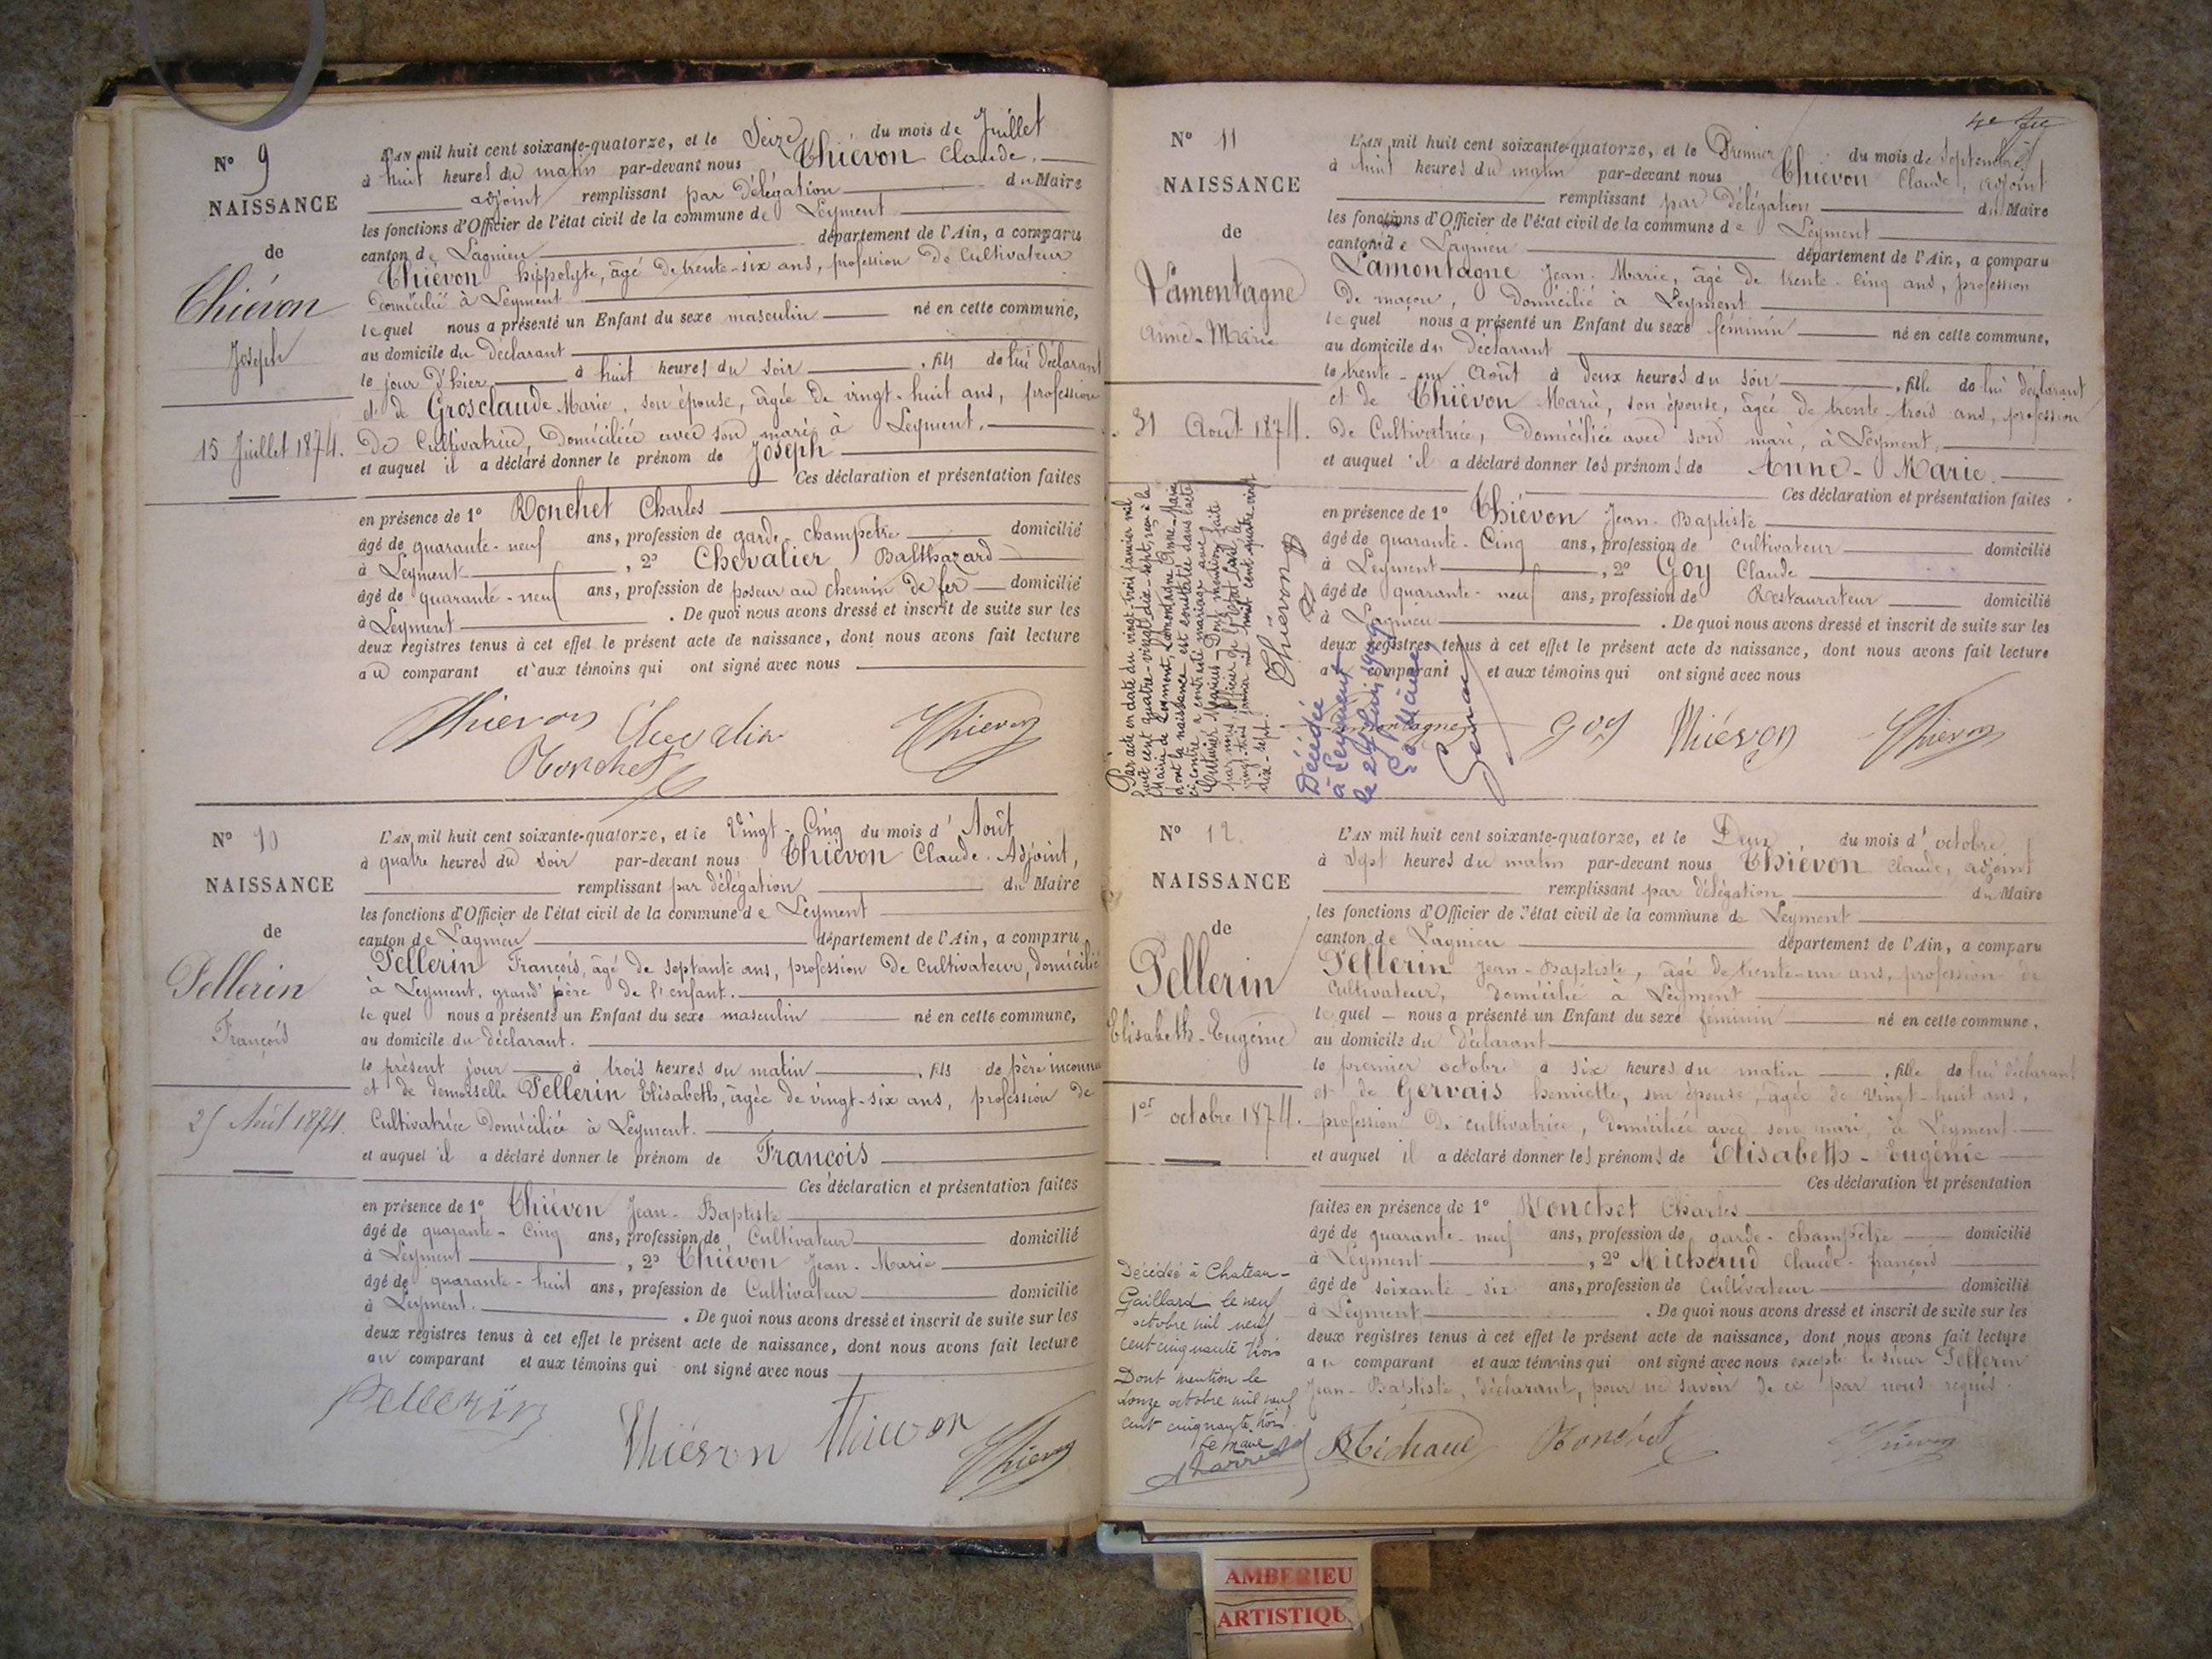 N° 9
NAISSANCE
de
Thiévon
Joseph
15 Juillet 1874.
L'AN mil huit cent soixante-quatorze, et le Seize du mois de Juillet
à huit heures du matin par-devant nous Thiévon Claude,
adjoint remplissant par délégation du Maire
les fonctions d'Officier de l'état civil de la commune de Leyment
canton de Lagnieu département de l'Ain, a comparu
Thiévon hippolyte, âgé de trente-six ans, profession de Cultivateur
domicilié à Leyment
lequel nous a présenté un Enfant du sexe masculin né en cette commune,
au domicile du déclarant
le jour d'hier à huit heures du soir, fils de lui déclarant
et de Grosclaude Marie, son épouse, âgée de vingt-huit ans, profession
de Cultivatrice, domiciliée avec son mari à Leyment.
et auquel il a déclaré donner le prénom de Joseph
Ces déclaration et présentation faites
en présence de 1° Ronchet Charles
âgé de quarante-neuf ans, profession de garde-champêtre domicilié
à Leyment, 2° Chevalier Balthazard
âgé de quarante-neuf ans, profession de poseur au chemin de fer domicilié
à Leyment. De quoi nous avons dressé et inscrit de suite sur les
deux registres tenus à cet effet le présent acte de naissance, dont nous avons fait lecture
au comparant et aux témoins qui ont signé avec nous
Thievon Chevalier Thievon
Ronchet
N° 10
NAISSANCE
de
Pellerin
François
25 Août 1874.
L'AN mil huit cent soixante-quatorze, et le Vingt-Cinq du mois d'Août
à quatre heures du soir par-devant nous Thiévon Claude. Adjoint,
remplissant par délégation du Maire
les fonctions d'Officier de l'état civil de la commune de Leyment
canton de Lagnieu département de l'Ain, a comparu
Pellerin François, âgé de septante ans, profession de Cultivateur, domicilié
à Leyment, grand père de l'enfant.
lequel nous a présenté un Enfant du sexe masculin né en cette commune,
au domicile du déclarant.
le présent jour à trois heures du matin, fils de père inconnu
et de demoiselle Pellerin Elisabeth, âgée de vingt-six ans, profession de
Cultivatrice domiciliée à Leyment.
et auquel il a déclaré donner le prénom de François
Ces déclaration et présentation faites
en présence de 1° Thiévon Jean-Baptiste
âgé de quarante-Cinq ans, profession de Cultivateur domicilié
à Leyment, 2° Thiévon Jean-Marie
âgé de quarante-huit ans, profession de Cultivateur domicilié
à Leyment. De quoi nous avons dressé et inscrit de suite sur les
deux registres tenus à cet effet le présent acte de naissance, dont nous avons fait lecture
au comparant et aux témoins qui ont signé avec nous
Pellerin
Thiévon Thievon Thievon
N° 11
NAISSANCE
de
Lamontagne
Anne-Marie
31 Août 1874.
L'AN mil huit cent soixante-quatorze, et le Premier du mois de Septembre
à huit heures du matin par-devant nous Thiévon Claude, adjoint
remplissant par délégation du Maire
les fonctions d'Officier de l'état civil de la commune de Leyment
canton de Lagnieu département de l'Ain, a comparu
Lamontagne Jean-Marie, âgé de trente-Cinq ans, profession
de maçon, domicilié à Leyment
lequel nous a présenté un Enfant du sexe féminin né en cette commune,
au domicile du déclarant
le trente-un Août à deux heures du soir, fille de lui déclarant
et de Thiévon Marie, son épouse, âgée de trente-trois ans, profession
de Cultivatrice, domiciliée avec son mari, à Leyment.
et auquel il a déclaré donner les prénoms de Anne-Marie.
Ces déclaration et présentation faites
en présence de 1° Thiévon Jean-Baptiste
âgé de quarante-Cinq ans, profession de cultivateur domicilié
à Leyment, 2° Goy Claude
âgé de quarante-neuf ans, profession de Restaurateur domicilié
à Lagnieu. De quoi nous avons dressé et inscrit de suite sur les
deux registres tenus à cet effet le présent acte de naissance, dont nous avons fait lecture
au comparant et aux témoins qui ont signé avec nous
Lamontagne Goy Thiévon Thievon
Par acte en date du vingt-trois janvier mil
huit cent quatre-vingt-dix-sept, reçu à la
Mairie de Leyment, Lamontagne Anne-Marie
dont la naissance est constatée dans l'acte
ci-contre, a contracté mariage avec
Marius. Dont mention faite
par nous, officier de l'état civil, le
vingt-trois janvier mil huit cent quatre-vingt
dix-sept.
Thiévon
Décédée
à Leyment
Le Maire
N° 12.
NAISSANCE
de
Pellerin
Elisabeth-Eugénie
1er octobre 1874.
L'AN mil huit cent soixante-quatorze, et le Deux du mois d'octobre
à sept heures du matin par-devant nous Thiévon Claude, adjoint
remplissant par délégation du Maire
les fonctions d'Officier de l'état civil de la commune de Leyment
canton de Lagnieu département de l'Ain, a comparu
Pellerin Jean-Baptiste, âgé de trente-un ans, profession de
Cultivateur, domicilié à Leyment
lequel nous a présenté un Enfant du sexe féminin né en cette commune,
au domicile du déclarant
le premier octobre à six heures du matin, fille de lui déclarant
et de Gervais henriette, son épouse, âgée de Vingt-huit ans,
profession de cultivatrice, domiciliée avec son mari, à Leyment
et auquel il a déclaré donner les prénoms de Elisabeth-Eugénie
Ces déclaration et présentation
faites en présence de 1° Ronchet Charles
âgé de quarante-neuf ans, profession de garde-champêtre domicilié
à Leyment, 2° Michaud Claude-françois
âgé de soixante-six ans, profession de Cultivateur domicilié
à Leyment. De quoi nous avons dressé et inscrit de suite sur les
deux registres tenus à cet effet le présent acte de naissance, dont nous avons fait lecture
au comparant et aux témoins qui ont signé avec nous excepté le sieur Pellerin
Jean-Baptiste, déclarant, pour ne savoir de ce par nous requis.
Michaud Ronchet Thievon
Décédée à Chateau-
Gaillard le neuf
octobre mil neuf
cent cinquante trois
Dont mention le
onze octobre mil neuf
cent cinquante trois
Le maire
AMBERIEU
ARTISTIQU